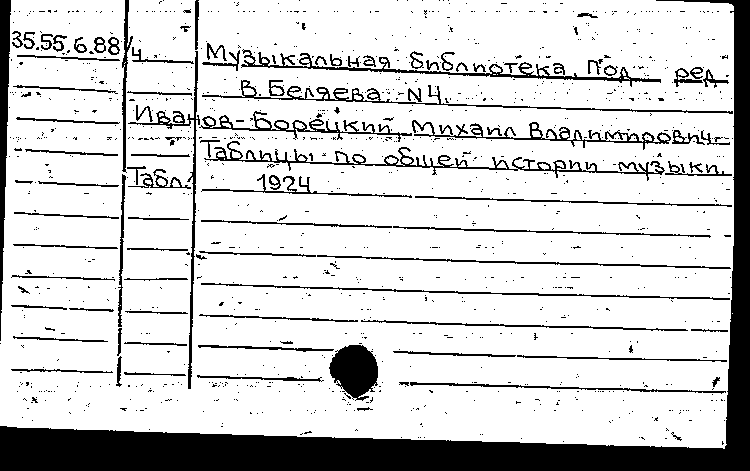 35.55.6.88/4 Музыкальная библиотека. Под ред.
В. Беляева. N4.
Иванов-Борецкий, Михаил Владимирович.
Таблицы по общей истории музыки.
Табл. 1924.